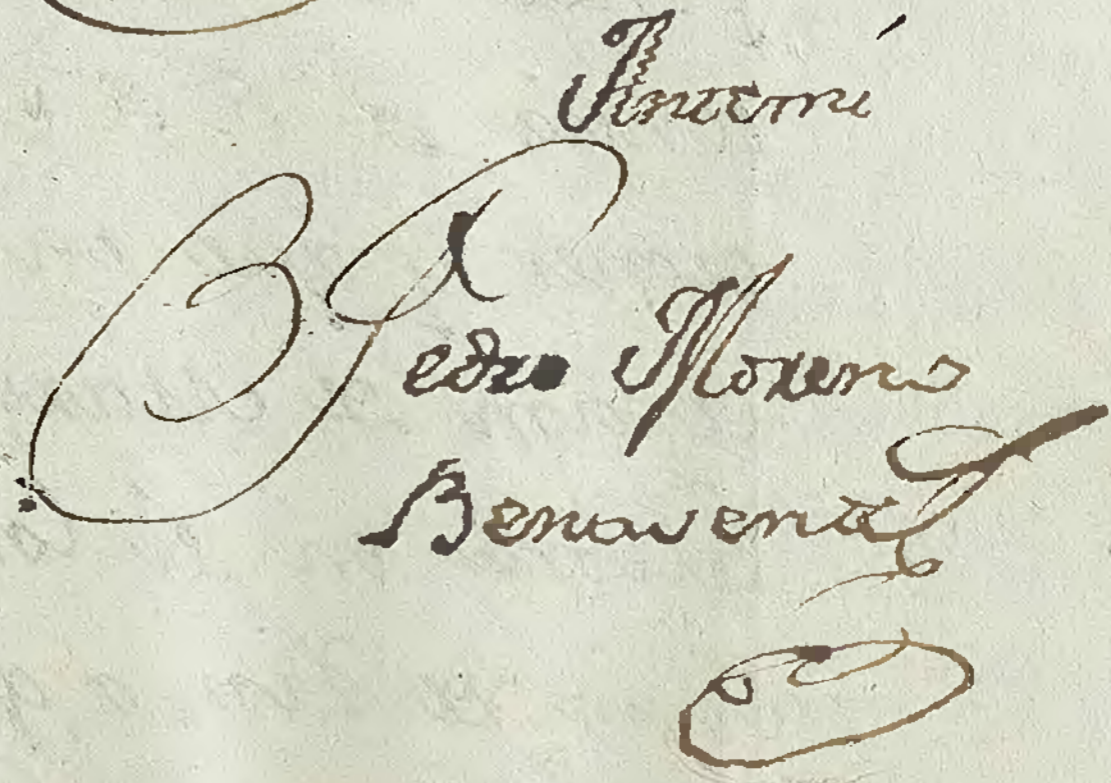 Antemi
Pedro Moreno
Benavente